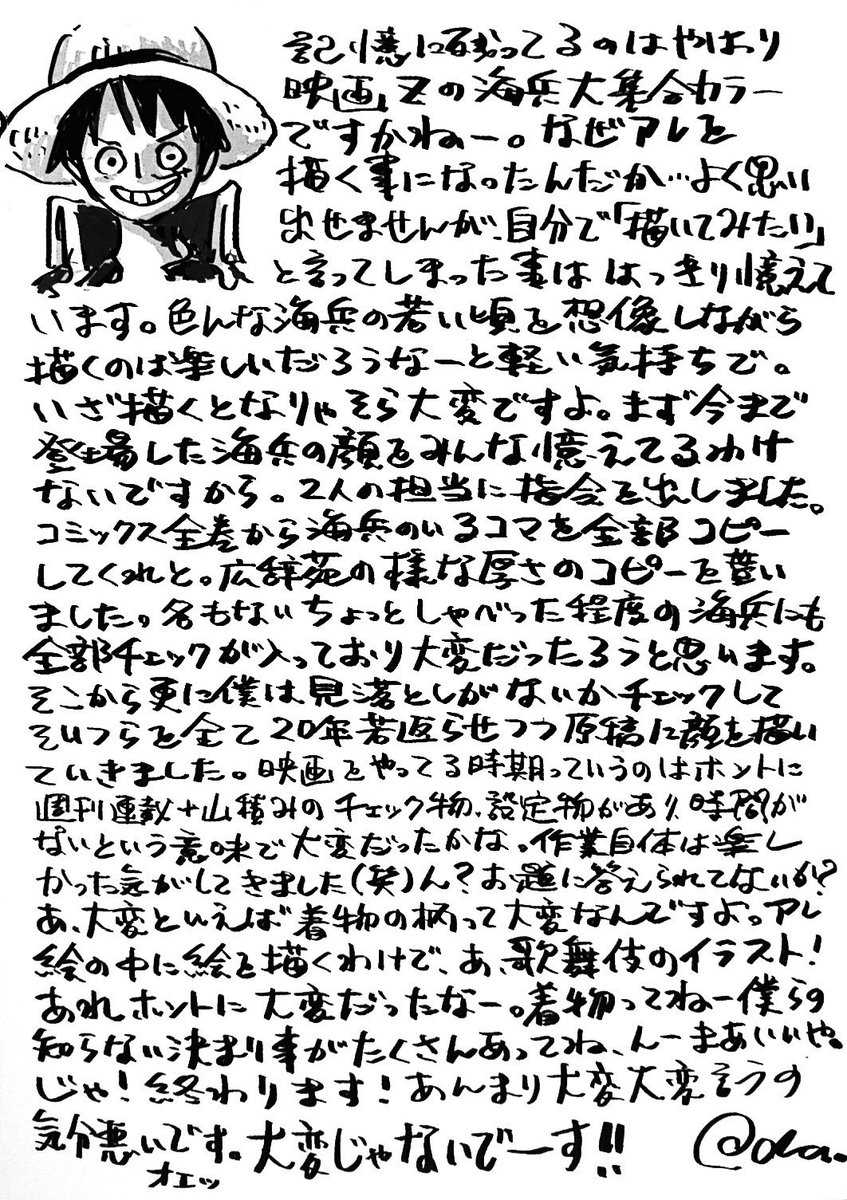 記憶に残ってるのはやはり
映画Zの海兵大集合カラー
ですかねー。なぜアレを
描く事になったんだか…よく思い
出せませんが、自分で「描いてみたい」
と言ってしまった事ははっきり憶えて
います。色んな海兵の若い頃を想像しながら
描くのは楽しいだろうなーと軽い気持ちで。
いざ描くとなりゃそら大変ですよ。まず今まで
登場した海兵の顔をみんな憶えてるわけ
ないですから。2人の担当に指令を出しました。
コミックス全巻から海兵のいるコマを全部コピー
してくれと。広辞苑の様な厚さのコピーを貰い
ました。名もないちょっとしゃべった程度の海兵にも
全部チェックが入っており大変だったろうと思います。
そこから更に僕は見落としがないかチェックして
そいつらを全て20年若返らせつつ原稿に顔を描い
ていきました。映画をやってる時期っていうのはホントに
週刊連載+山積みのチェック物、設定物があり、時間が
ないという意味で大変だったかな。作業自体は楽し
かった気がしてきました(笑)ん?お題に答えられてないか?
あ、大変といえば着物の柄って大変なんですよっアレ
絵の中に絵を描くわけで、あ、歌舞伎のイラスト!
あれホントに大変だったなー。着物ってねー僕らの
知らない決まり事がたくさんあってね、んーまあいいや。
じゃ!終わります!あんまり大変大変言うの
気分悪いです。大変じゃないでーす!!
オエッ
@oda.